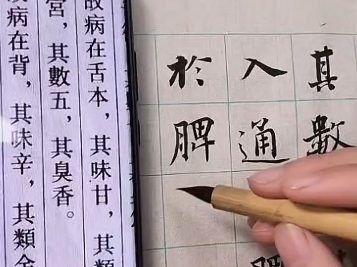 其數
入通
於脾
故病在舌本，其味甘，其類
宮，其數五，其臭香。
故病在背，其味辛，其類金